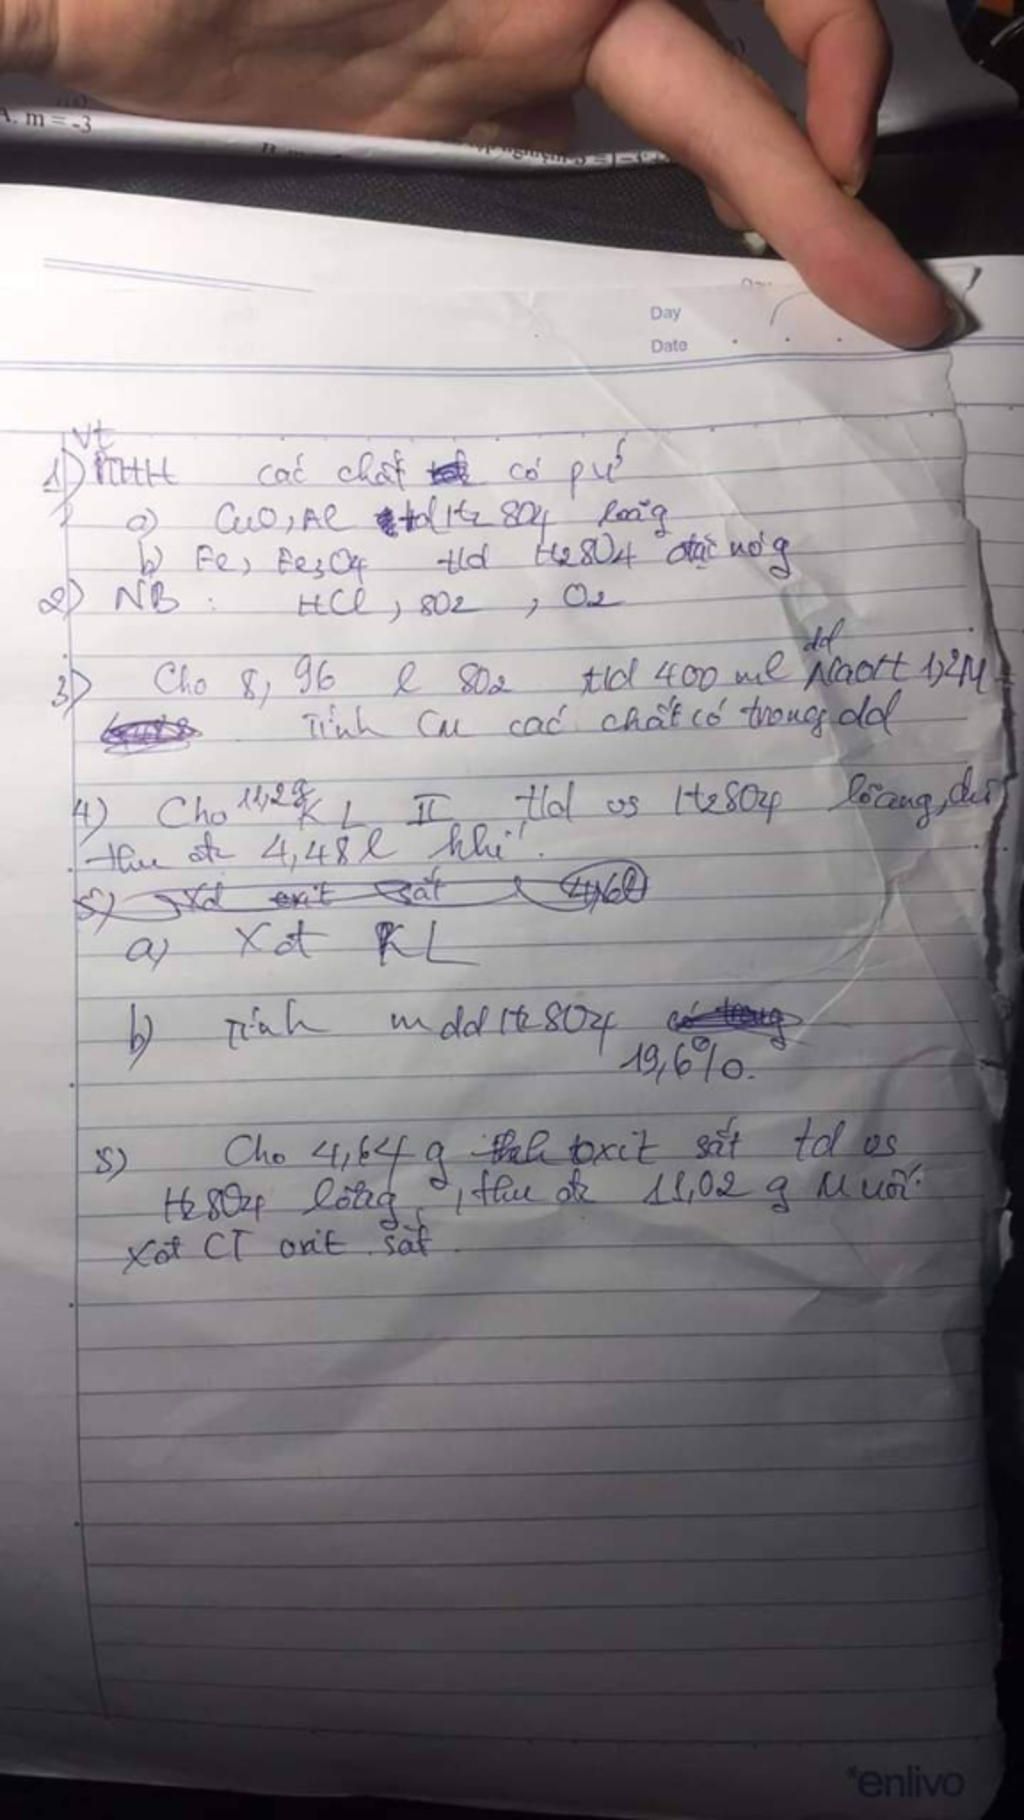 A. m = -3
Day
Date
Vt
1) PTHH các chất có pứ
a) CuO, Al td H2SO4 loãg
b) Fe, Fe3O4 td H2SO4 đặc nóg
2) NB : HCl, SO2 , O2
dd
3) Cho 8,96 l SO2 td 400 ml NaOH 1,2M
Tính CM các chất có trong dd
4) Cho 11,2g KL II td vs H2SO4 lõang, dư
thu đc 4,48 l khí.
a) Xđ KL
b) Tính mdd H2SO4
19,6%.
5) Cho 4,64 g oxit sắt td vs
H2SO4 lõag, thu đc 11,02 g Muối.
Xđ CT oxit sắt.
enlivo